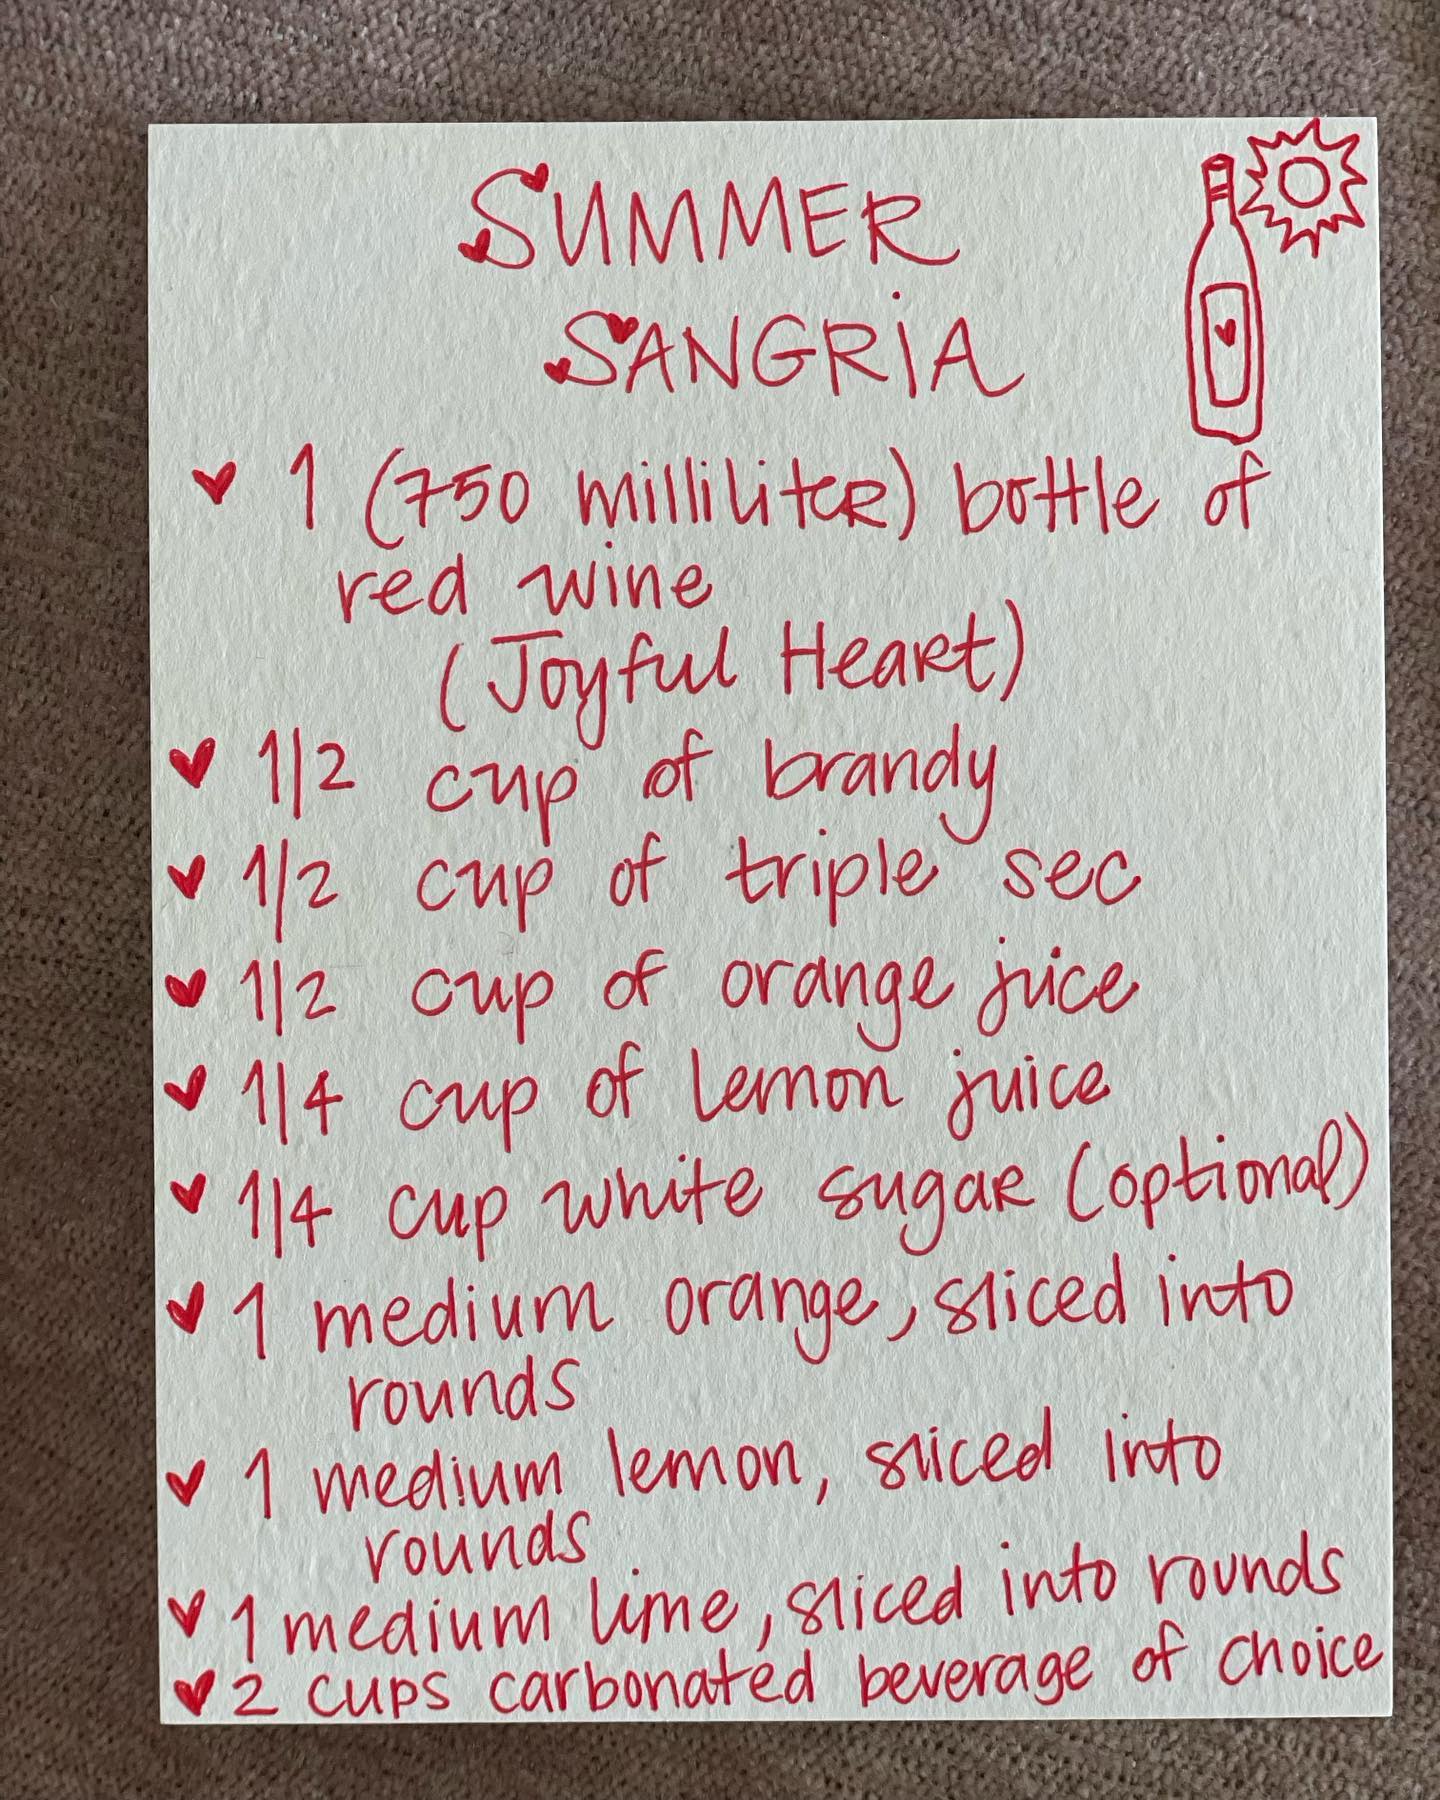 SUMMER
SANGRiA
1 (750 milliliteR) bottle of
red wine
(Joyful Heart)
1/2 cup of brandy
1/2 cup of triple sec
1/2 cup of orange juice
1/4 cup of lemon juice
1/4 cup white sugar (optional)
1 medium orange, sliced into
rounds
1 medium lemon, sliced into
rounds
1 medium lime, sliced into rounds
2 cups carbonated beverage of choice